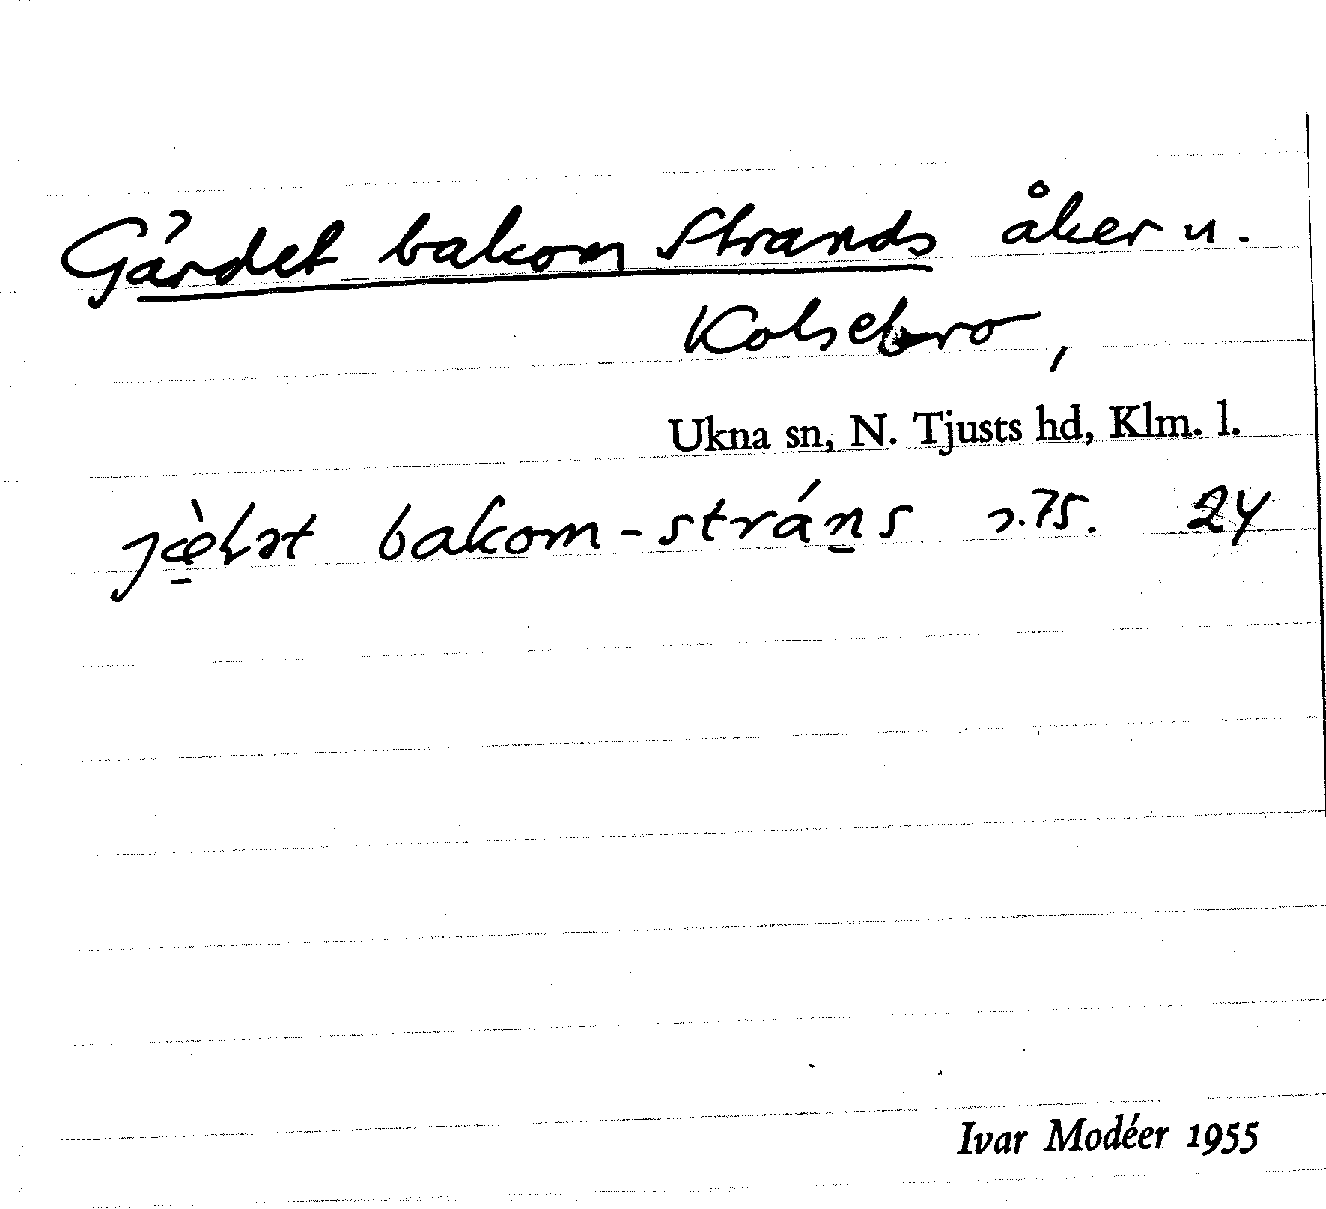 Gärdet bakom Strands åker u.
Kolsebro,
Ukna sn, N. Tjusts hd, Klm. l.
bakom-stráns 24
Ivar Modéer 1955